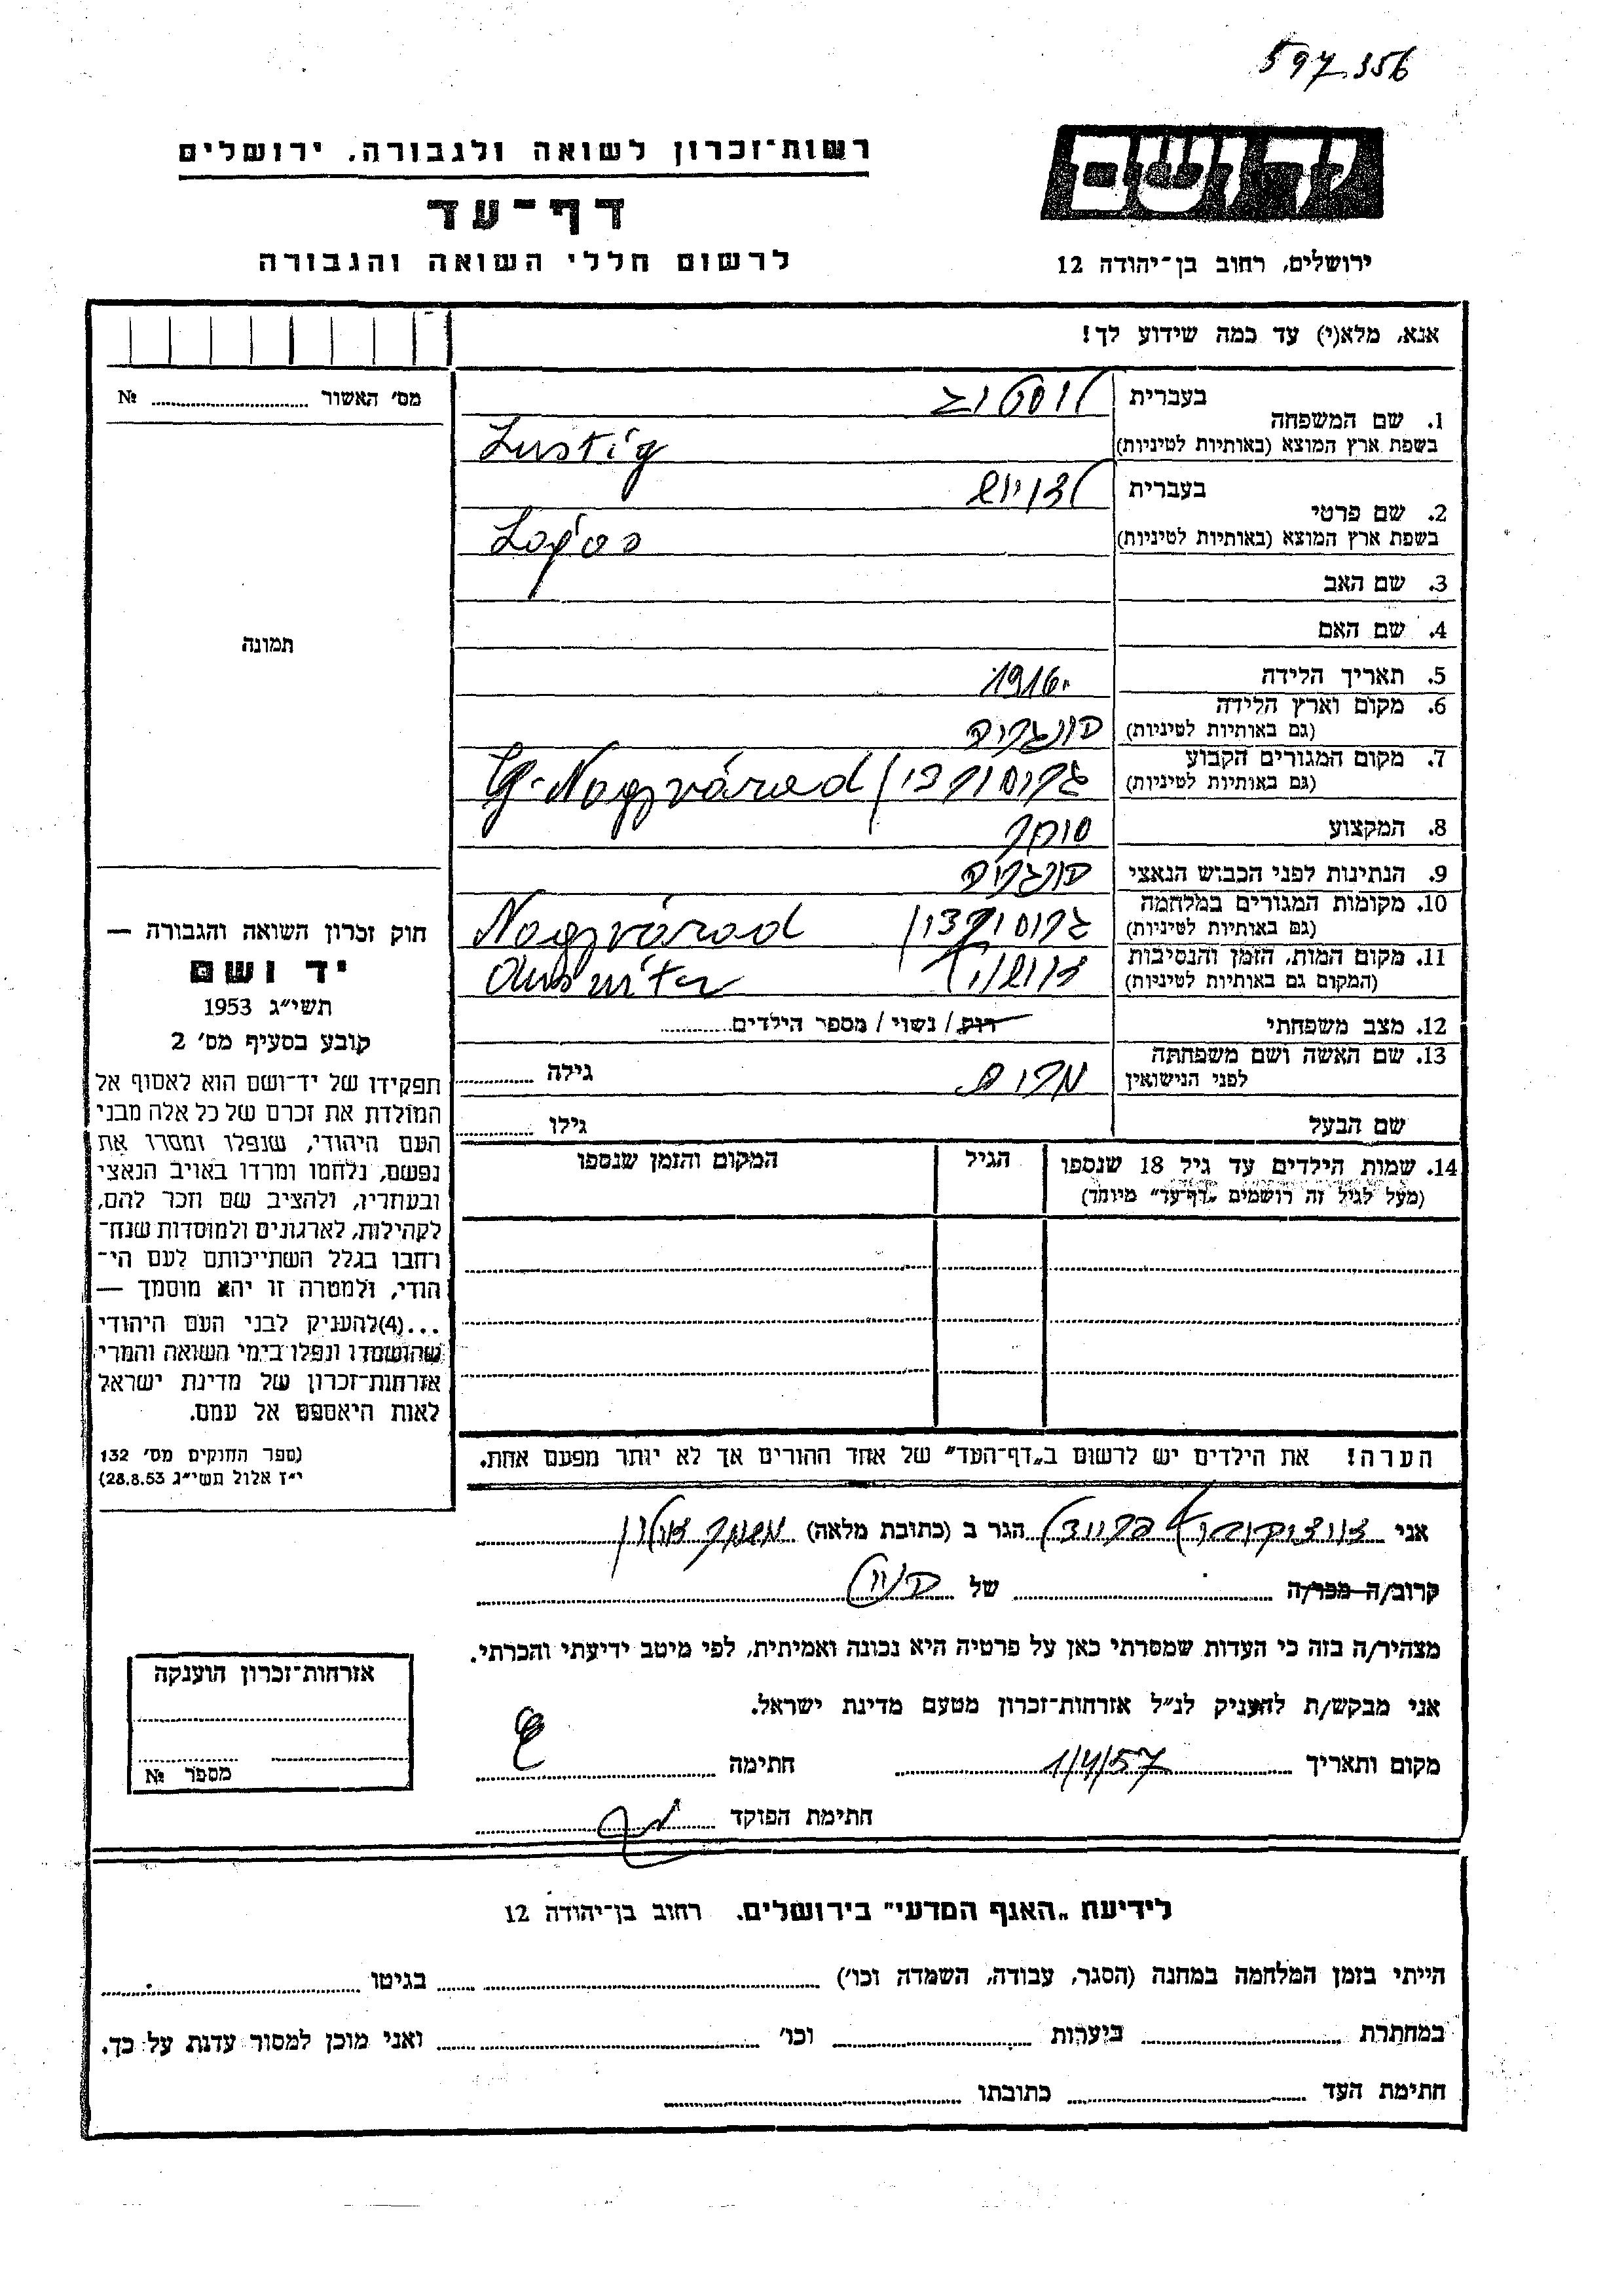 597356
יד ושם
רשות־זכרון לשואה ולגבורה, ירושלים
דף־עד
לרשום חללי השואה והגבורה
ירושלים, רחוב בן־יהודה 12
אנא, מלא(י) עד כמה שידוע לך!
מס' האשור № ..........
תמונה
1. שם המשפחה
בעברית לוסטיג
בשפת ארץ המוצא (באותיות לטיניות) Lustig
2. שם פרטי
בעברית לאיוש
בשפת ארץ המוצא (באותיות לטיניות) Lajos
3. שם האב
4. שם האם
5. תאריך הלידה 1916
6. מקום וארץ הלידה
(גם באותיות לטיניות) הונגריה
7. מקום המגורים הקבוע
(גם באותיות לטיניות) גרוסורדין Nagyvárad
8. המקצוע סוחר
9. הנתינות לפני הכבוש הנאצי הונגריה
10. מקומות המגורים במלחמה
(גם באותיות לטיניות) גרוסורדין Nagyvárad
11. מקום המות, הזמן והנסיבות
(המקום גם באותיות לטיניות) אושויץ
12. מצב משפחתי רוק / נשוי / מספר הילדים..........
13. שם האשה ושם משפחתה
לפני הנישואין מרים גילה ..........
שם הבעל גילו ..........
14. שמות הילדים עד גיל 18 שנספו
(מעל לגיל זה רושמים „דף־עד" מיוחד)
הגיל
המקום והזמן שנספו
הערה! את הילדים יש לרשום ב„דף־העד" של אחד ההורים אך לא יותר מפעם אחת.
חוק זכרון השואה והגבורה —
יד ושם
תשי"ג 1953
קובע בסעיף מס' 2
תפקידו של יד־ושם הוא לאסוף אל
המולדת את זכרם של כל אלה מבני
העם היהודי, שנפלו ומסרו את
נפשם, נלחמו ומרדו באויב הנאצי
ובעוזריו, ולהציב שם וזכר להם,
לקהילות, לארגונים ולמוסדות שנח־
רחבו בגלל השתייכותם לעם הי־
הודי, ולמטרה זו יהא מוסמך —
...(4)להעניק לבני העם היהודי
שהושמדו ונפלו בימי השואה והמרי
אזרחות־זכרון של מדינת ישראל
לאות היאספם אל עמם.
(ספר החוקים מס' 132
י"ז אלול תשי"ג 28.8.53)
אני .......... הגר ב (כתובת מלאה) ..........
קרוב/ה מכר/ה .......... של ..........
מצהיר/ה בזה כי העדות שמסרתי כאן על פרטיה היא נכונה ואמיתית, לפי מיטב ידיעתי והכרתי.
אני מבקש/ת להעניק לנ"ל אזרחות־זכרון מטעם מדינת ישראל.
מקום ותאריך 1/4/57 חתימה ..........
חתימת הפוקד ..........
אזרחות־זכרון הוענקה
מספר №
לידיעת „האגף המדעי" בירושלים. רחוב בן־יהודה 12
הייתי בזמן המלחמה במחנה (הסגר, עבודה, השמדה וכו') .......... בגיטו ..........
במחתרת .......... ביערות .......... וכו' .......... ואני מוכן למסור עדות על כך.
חתימת העד .......... כתובתו ..........